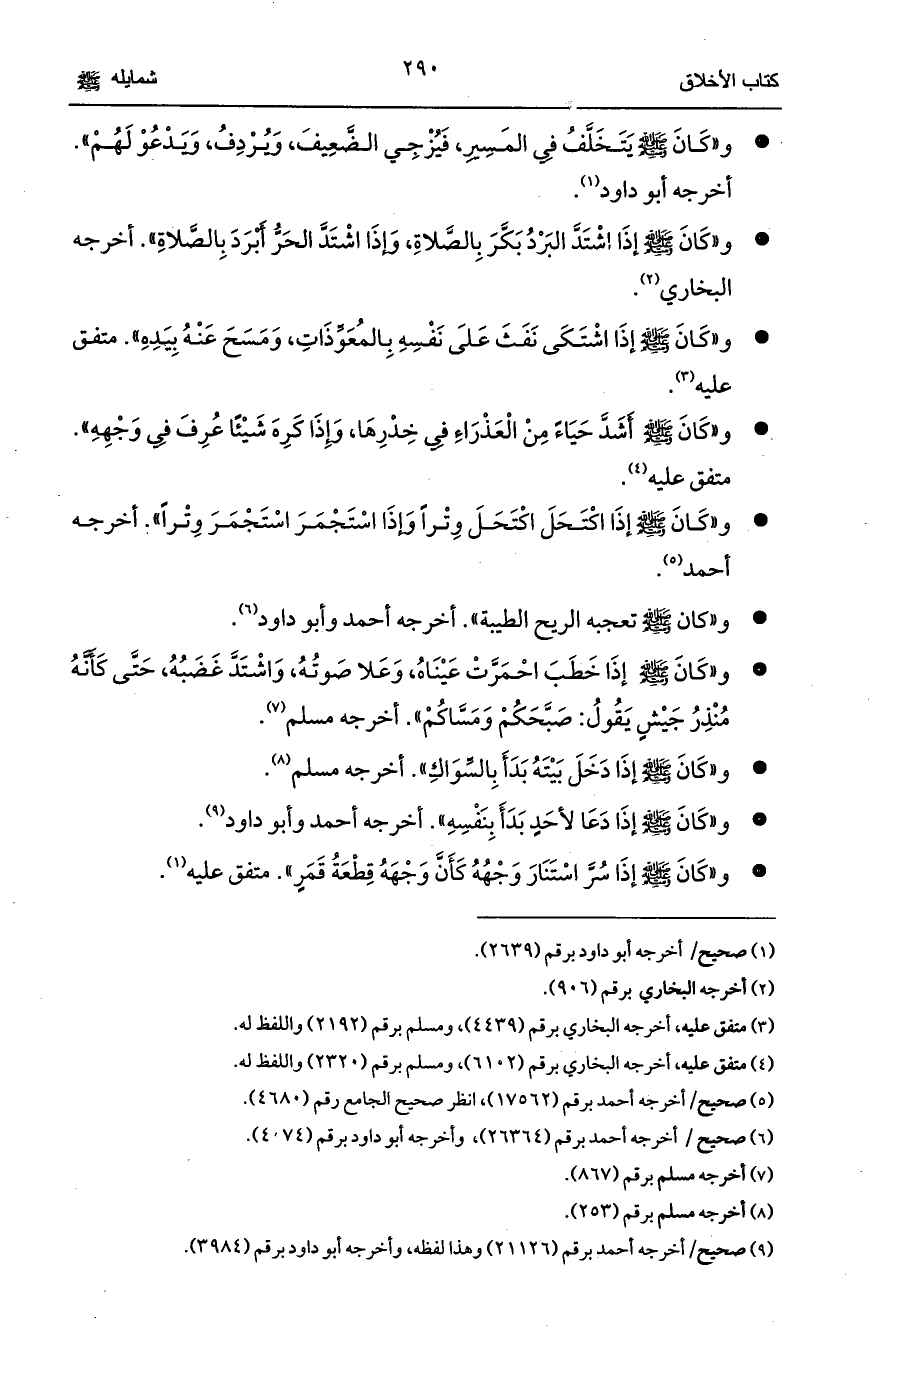 كتاب الأخلاق ٢٩٠ شمايله ﷺ
● و«كَانَ ﷺ يَتَخَلَّفُ فِي المَسِيرِ، فَيُزْجِي الضَّعِيفَ، وَيُرْدِفُ، وَيَدْعُوْ لَهُمْ».
أخرجه أبو داود(١).
● و«كَانَ ﷺ إِذَا اشْتَدَّ البَرْدُ بَكَّرَ بِالصَّلاةِ، وَإِذَا اشْتَدَّ الحَرُّ أَبْرَدَ بِالصَّلاةِ». أخرجه
البخاري(٢).
● و«كَانَ ﷺ إِذَا اشْتَكَى نَفَثَ عَلَى نَفْسِهِ بِالمُعَوِّذَاتِ، وَمَسَحَ عَنْهُ بِيَدِهِ». متفق
عليه(٣).
● و«كَانَ ﷺ أَشَدَّ حَيَاءً مِنْ الْعَذْرَاءِ فِي خِدْرِهَا، وَإِذَا كَرِهَ شَيْئًا عُرِفَ فِي وَجْهِهِ».
متفق عليه(٤).
● و«كَانَ ﷺ إِذَا اكْتَحَلَ اكْتَحَلَ وِتْراً وَإِذَا اسْتَجْمَرَ اسْتَجْمَرَ وِتْراً». أخرجه
أحمد(٥).
● و«كان ﷺ تعجبه الريح الطيبة». أخرجه أحمد وأبو داود(٦).
● و«كَانَ ﷺ إِذَا خَطَبَ احْمَرَّتْ عَيْنَاهُ، وَعَلا صَوتُهُ، وَاشْتَدَّ غَضَبُهُ، حَتَّى كَأَنَّهُ
مُنْذِرُ جَيْشٍ يَقُولُ: صَبَّحَكُمْ وَمَسَّاكُمْ». أخرجه مسلم(٧).
● و«كَانَ ﷺ إِذَا دَخَلَ بَيْتَهُ بَدَأَ بِالسِّوَاكِ». أخرجه مسلم(٨).
● و«كَانَ ﷺ إِذَا دَعَا لأَحَدٍ بَدَأَ بِنَفْسِهِ». أخرجه أحمد وأبو داود(٩).
● و«كَانَ ﷺ إِذَا سُرَّ اسْتَنَارَ وَجْهُهُ كَأَنَّ وَجْهَهُ قِطْعَةُ قَمَرٍ». متفق عليه(١).
(١) صحيح/ أخرجه أبو داود برقم (٢٦٣٩).
(٢) أخرجه البخاري برقم (٩٠٦).
(٣) متفق عليه، أخرجه البخاري برقم (٤٤٣٩)، ومسلم برقم (٢١٩٢) واللفظ له.
(٤) متفق عليه، أخرجه البخاري برقم (٦١٠٢)، ومسلم برقم (٢٣٢٠) واللفظ له.
(٥) صحيح/ أخرجه أحمد برقم (١٧٥٦٢)، انظر صحيح الجامع رقم (٤٦٨٠).
(٦) صحيح / أخرجه أحمد برقم (٢٦٣٦٤)، وأخرجه أبو داود برقم (٤٠٧٤).
(٧) أخرجه مسلم برقم (٨٦٧).
(٨) أخرجه مسلم برقم (٢٥٣).
(٩) صحيح/ أخرجه أحمد برقم (٢١١٢٦) وهذا لفظه، وأخرجه أبو داود برقم (٣٩٨٤).